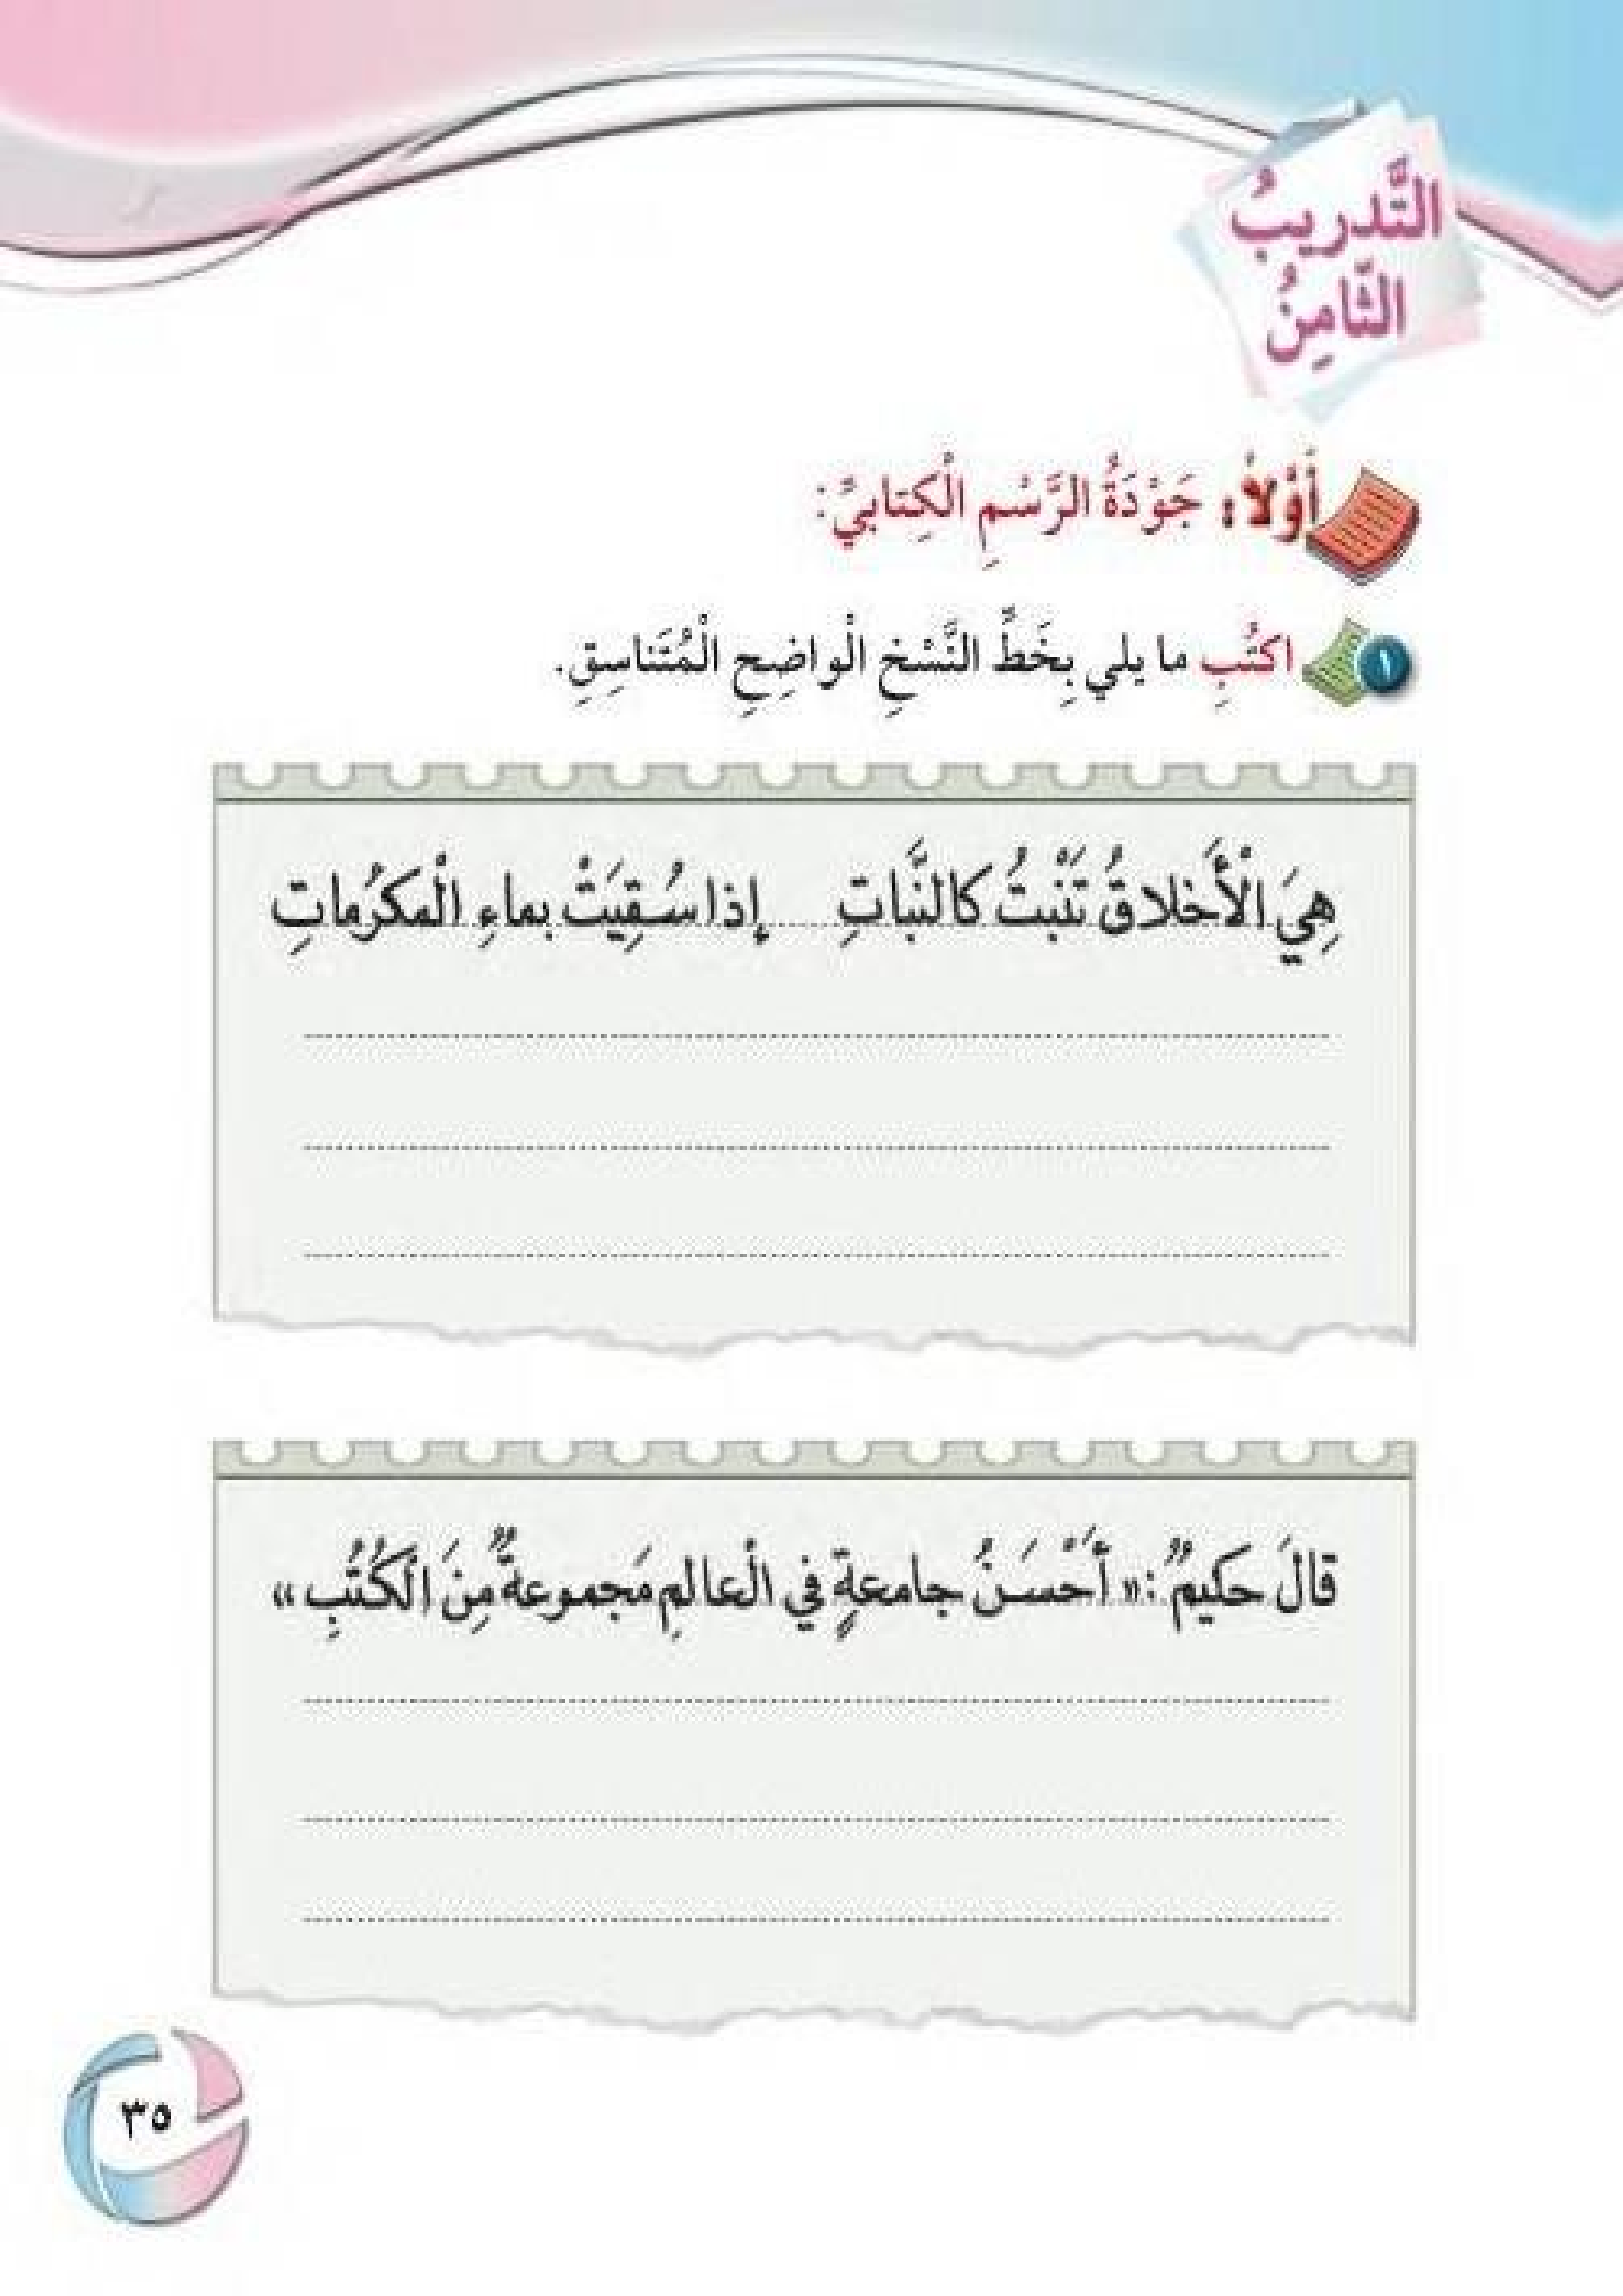 التَّدريبُ
الثّامِنُ
أَوَّلاً: جَوْدَةُ الرَّسْمِ الْكِتابيِّ:
١ اكتُبِ ما يلي بِخَطِّ النَّسْخِ الْواضِحِ الْمُتَناسِقِ.
هِيَ الْأَخلاقُ تَنْبتُ كالنَّباتِ إِذا سُقِيَتْ بماءِ الْمَكرُماتِ
قالَ حَكيمٌ: «أَحْسَنُ جامعةٍ في الْعالمِ مَجموعةٌ مِنَ الْكُتُبِ»
٣٥